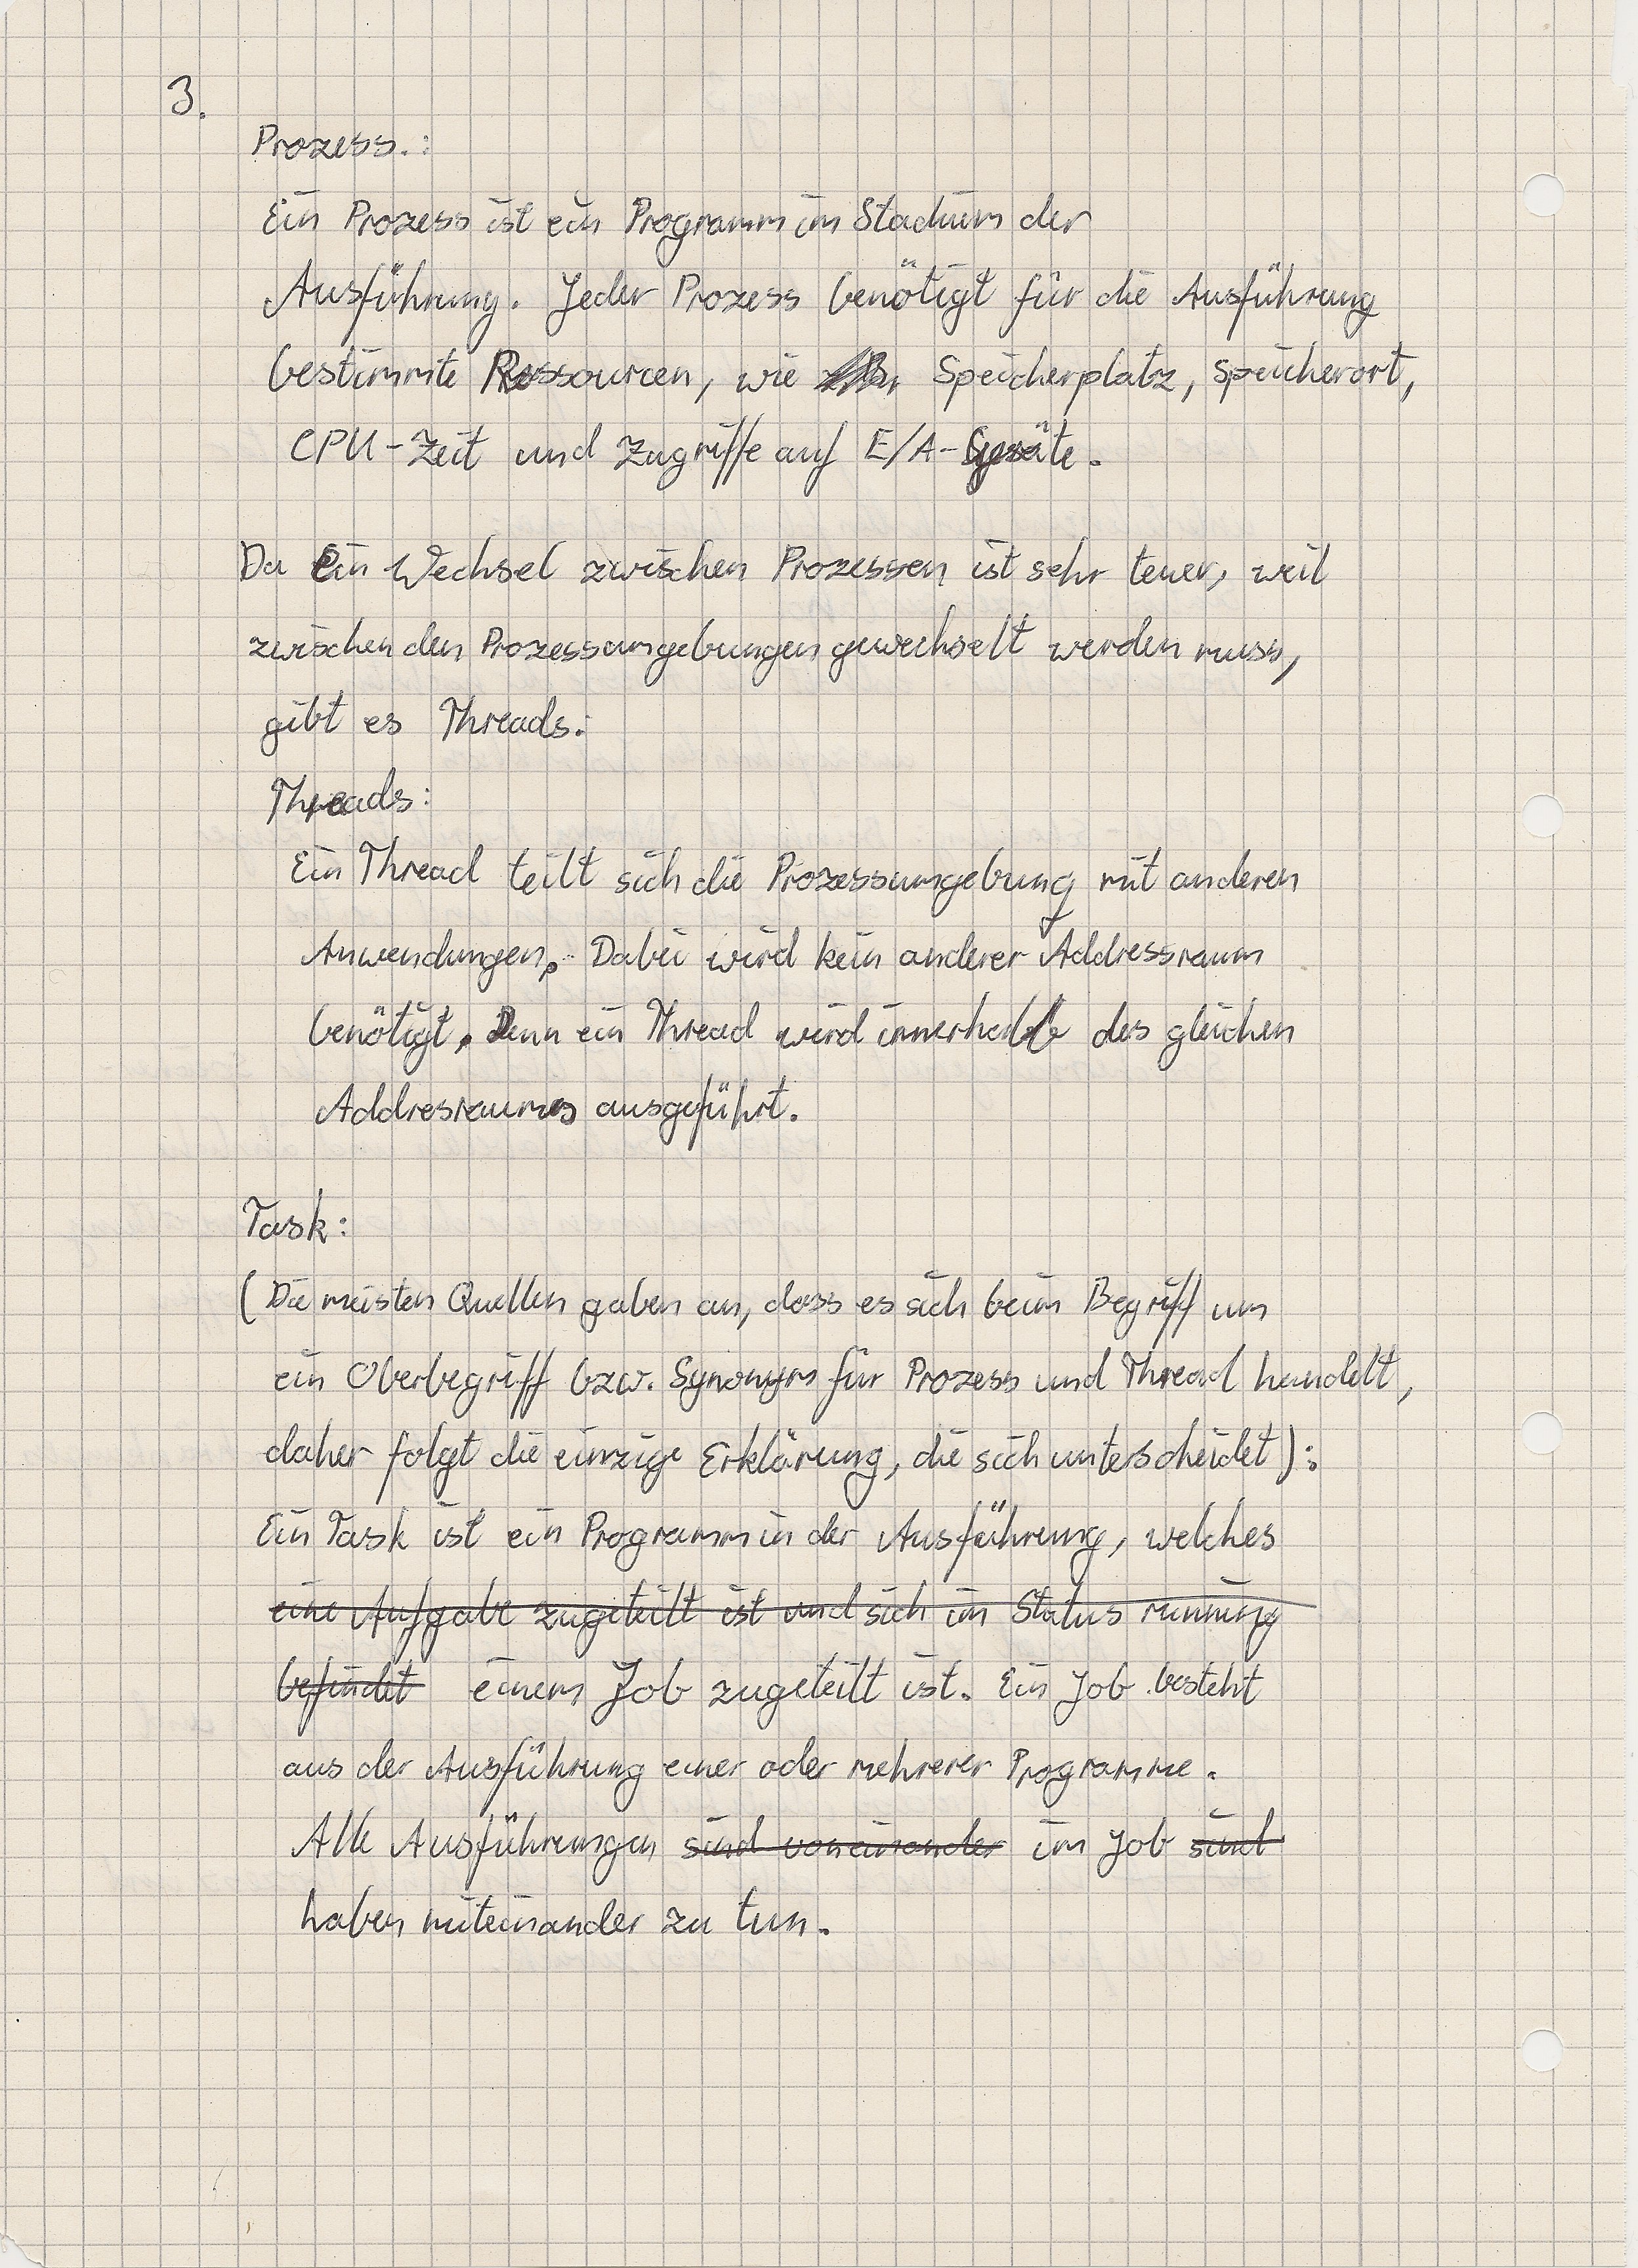 3.
Prozess.:
Ein Prozess ist ein Programm im Stadium der
Ausführung. Jeder Prozess benötigt für die Ausführung
bestimmte Ressourcen, wie Speicherplatz, Speicherort,
CPU-Zeit und Zugriffe auf E/A-Geräte.
Da Ein Wechsel zwischen Prozessen ist sehr teuer, weil
zwischen den Prozessumgebungen gewechselt werden muss,
gibt es Threads:
Threads:
Ein Thread teilt sich die Prozessumgebung mit anderen
Anwendungen. Dabei wird kein anderer Addressraum
benötigt. Denn ein Thread wird innerhalb des gleichen
Addresraumes ausgeführt.
Task:
(Die meisten Quellen gaben an, dass es sich beim Begriff um
ein Oberbegriff bzw. Synonym für Prozess und Thread handelt,
daher folgt die einzige Erklärung, die sich unterscheidet):
Ein Task ist ein Programm in der Ausführung, welches
eine Aufgabe zugeteilt ist und sich im Status running
befindet einem Job zugeteilt ist. Ein Job besteht
aus der Ausführung einer oder mehrerer Programme.
Alle Ausführungen sind voneinander im Job sind
haben miteinander zu tun.